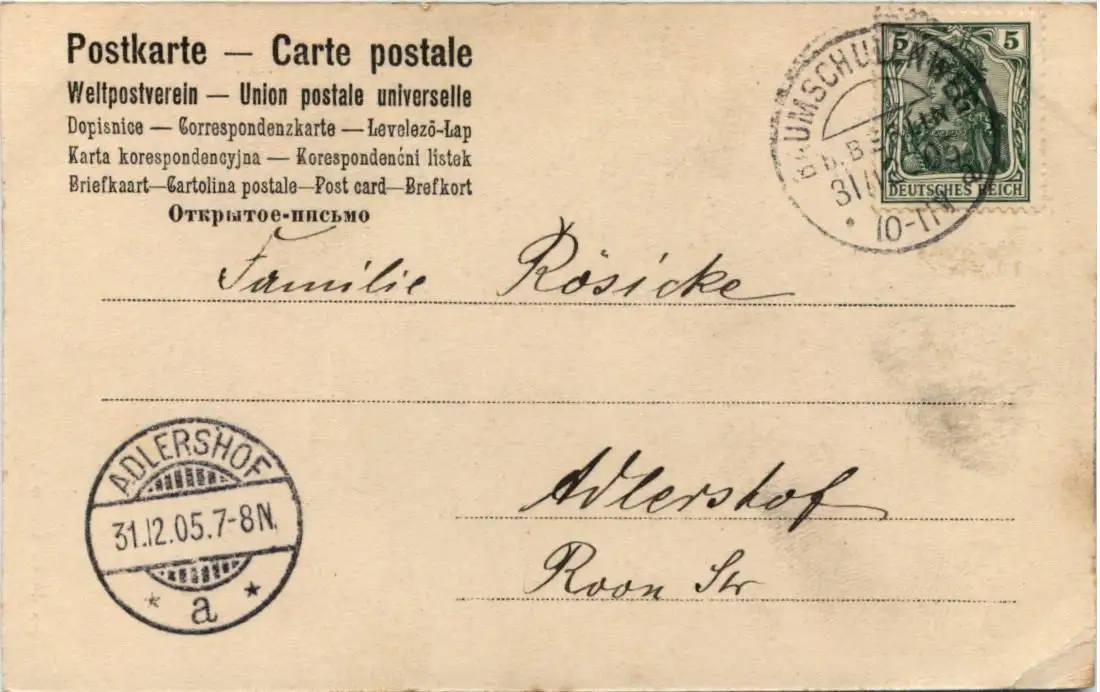 Postkarte — Carte postale
Weltpostverein — Union postale universelle
Dopisnice — Correspondenzkarte — Levelező-Lap
Karta korespondencyjna — Korespondenčni listek
Briefkaart—Cartolina postale—Post card—Brefkort
Открытое-письмо
5 5
DEUTSCHES REICH
BAUMSCHULENWEG
10-11
Familie Rösicke
ADLERSHOF
31.12.05.7-8N.
* a *
Adlershof
Roon Str